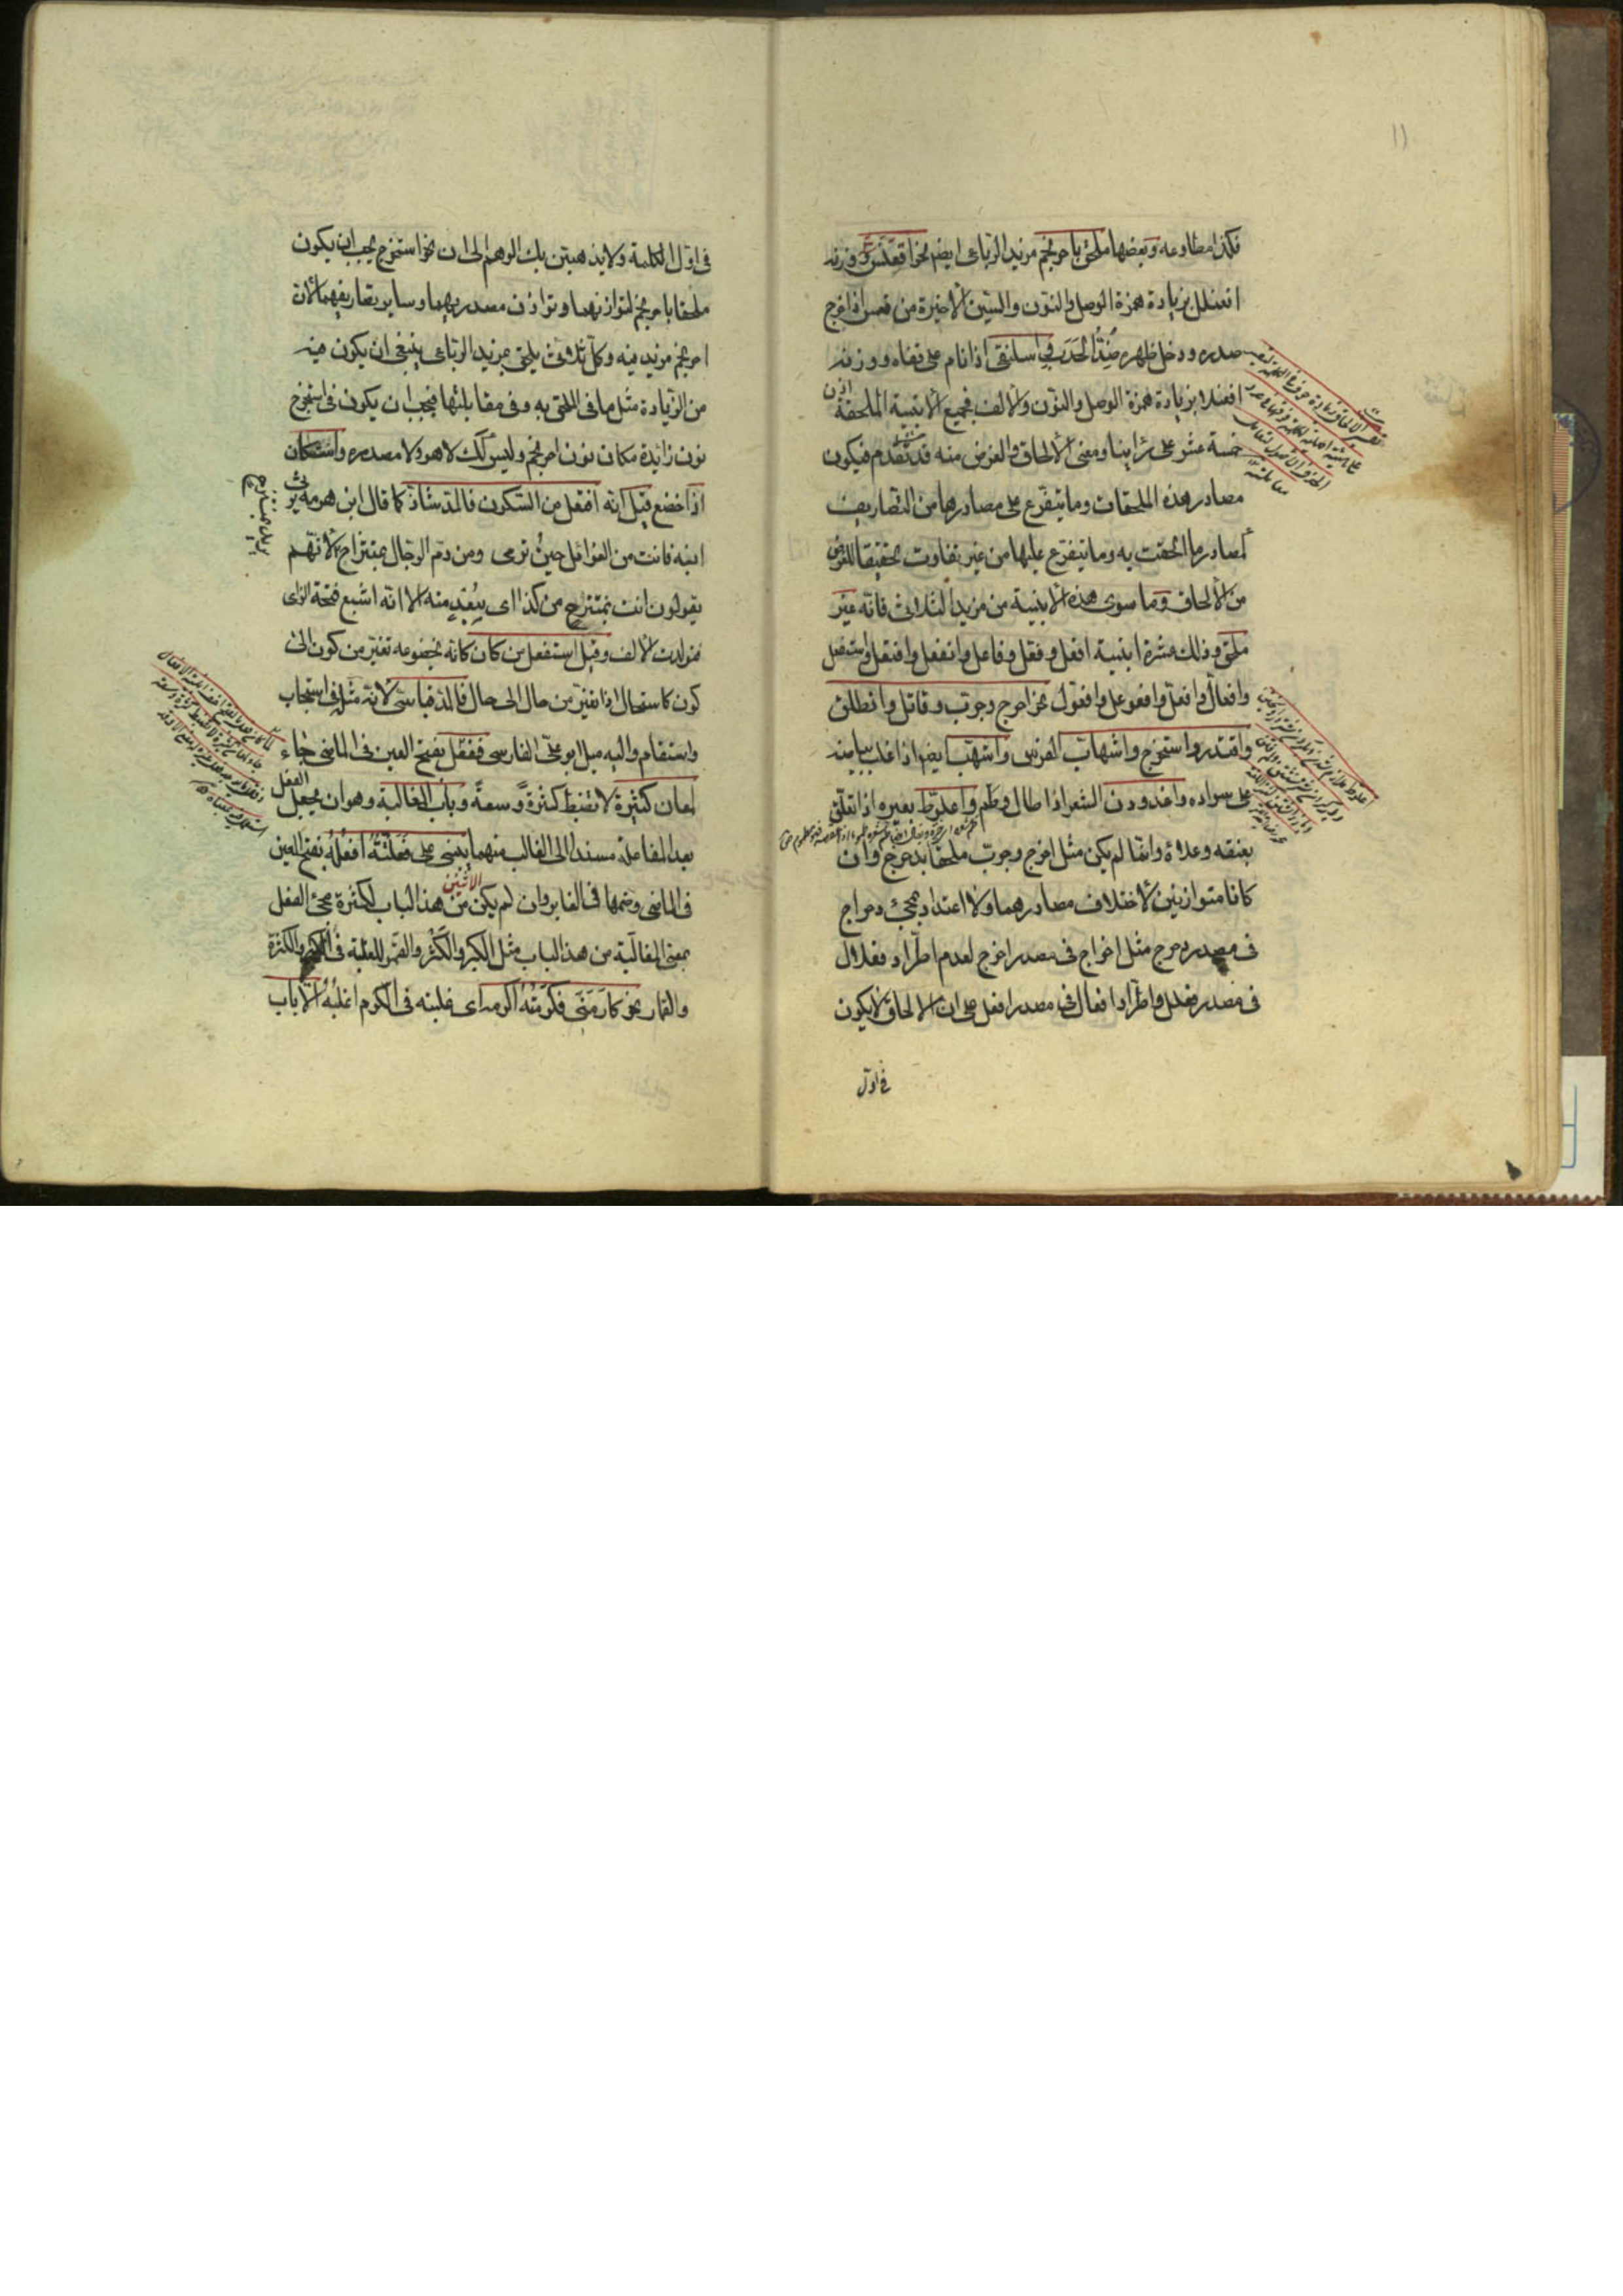 ١١
فكذا مطاوعه وبعضها ملحق باحرنجم مزيد الرباعى ايضا نحو اقعنسس ووزنه
افعنلل بزيادة همزة الوصل والنون والسين الاخيرة من قعس اذا خرج
صدره ودخل ظهره ضد الحدب واسلنقى اذا نام على قفاه ووزنه
افعنلا بزيادة همزة الوصل والنون والالف فجميع الابنية الملحقة اذن
خمسة عشر على ما راينا ومعنى الالحاق والغرض منه قد تقدم فيكون
مصادر هذه الملحقات وما يتفرع على مصادرها من التصاريف
كمصادر ما الحقت به وما يتفرع عليها من غير تفاوت تحقيقا للغرض
من الالحاق وما سوى هذه الابنية من مزيد الثلاثى فانه غير
ملحق وذلك عشرة ابنية افعل وفعل وفاعل وانفعل وافتعل واستفعل
وافعال وافعل وافعوعل وافعول نحو اخرج وجرب وقاتل وانطلق
واقتدر واستخرج واشهاب الفرس واشهب ايضا اذا غلب بياضه
على سواده واغدودن الشعر اذا طال وطم واعلوط بعيره اذا تعلق
بعنقه وعلاه وانما لم يكن مثل اخرج وجرب ملحقا بدحرج وان
كانا متوازنين لاختلاف مصادرهما ولا اعتداد بمجئ دحراج
فى مصدر دحرج مثل اخراج فى مصدر اخرج لعدم اطراد فعلال
فى مصدر فعلل واطراد افعال فى مصدر افعل على ان الالحاق لا يكون
فى اول
فى اول الكلمة ولا يذهبن بك الوهم الى ان نحو استخرج يجب ان يكون
ملحقا باحرنجم لتوازنهما وتوازن مصدريهما وساير تصاريفهما لان
احرنجم مزيد فيه وكل ثلاثى يلحق بمزيد الرباعى ينبغى ان يكون فيه
من الزيادة مثل ما فى الملحق به وفى مقابلتها فيجب ان يكون فى استخرج
نون زائدة مكان نون احرنجم وليس كك لا هو ولا مصدره واستكان
اذا خضع قيل انه افتعل من السكون فالمد شاذ كما قال ابن هرمة يرثى
ابنه فانت من الغوائل حين ترمى ومن ذم الرجال بمنتزاح لانهم
يقولون انت بمنتزح من كذا اى ببعد منه الا انه اشبع فتحة الزاى
فتولدت الالف وقيل استفعل من كان كانه بخضوعه تغير من كون الى
كون كاستحال اذا تغير من حال الى حال فالمد قياسى لانه مثله فى استجاب
واستقام واليه ميل ابو على الفارسى ففعل بفتح العين فى الماضى جاء
لمعان كثيرة لا تضبط كثرة وسعة وباب المغالبة وهو ان يجعل الفعل
بعد المفاعلة مسندا الى الغالب منهما يبنى على فعلته افعله بفتح العين
فى الماضى وضمها فى الغابر وان لم يكن من هذا الباب لكثرة مجئ الفعل
الاثنين
بمعنى المغالبة من هذا الباب مثل الكبر والكثر والقمر للغلبة فى الكبر والكثرة
والقمار نحو كارمنى فكرمته اكرمه اى غلبته فى الكرم اغلبه الا باب